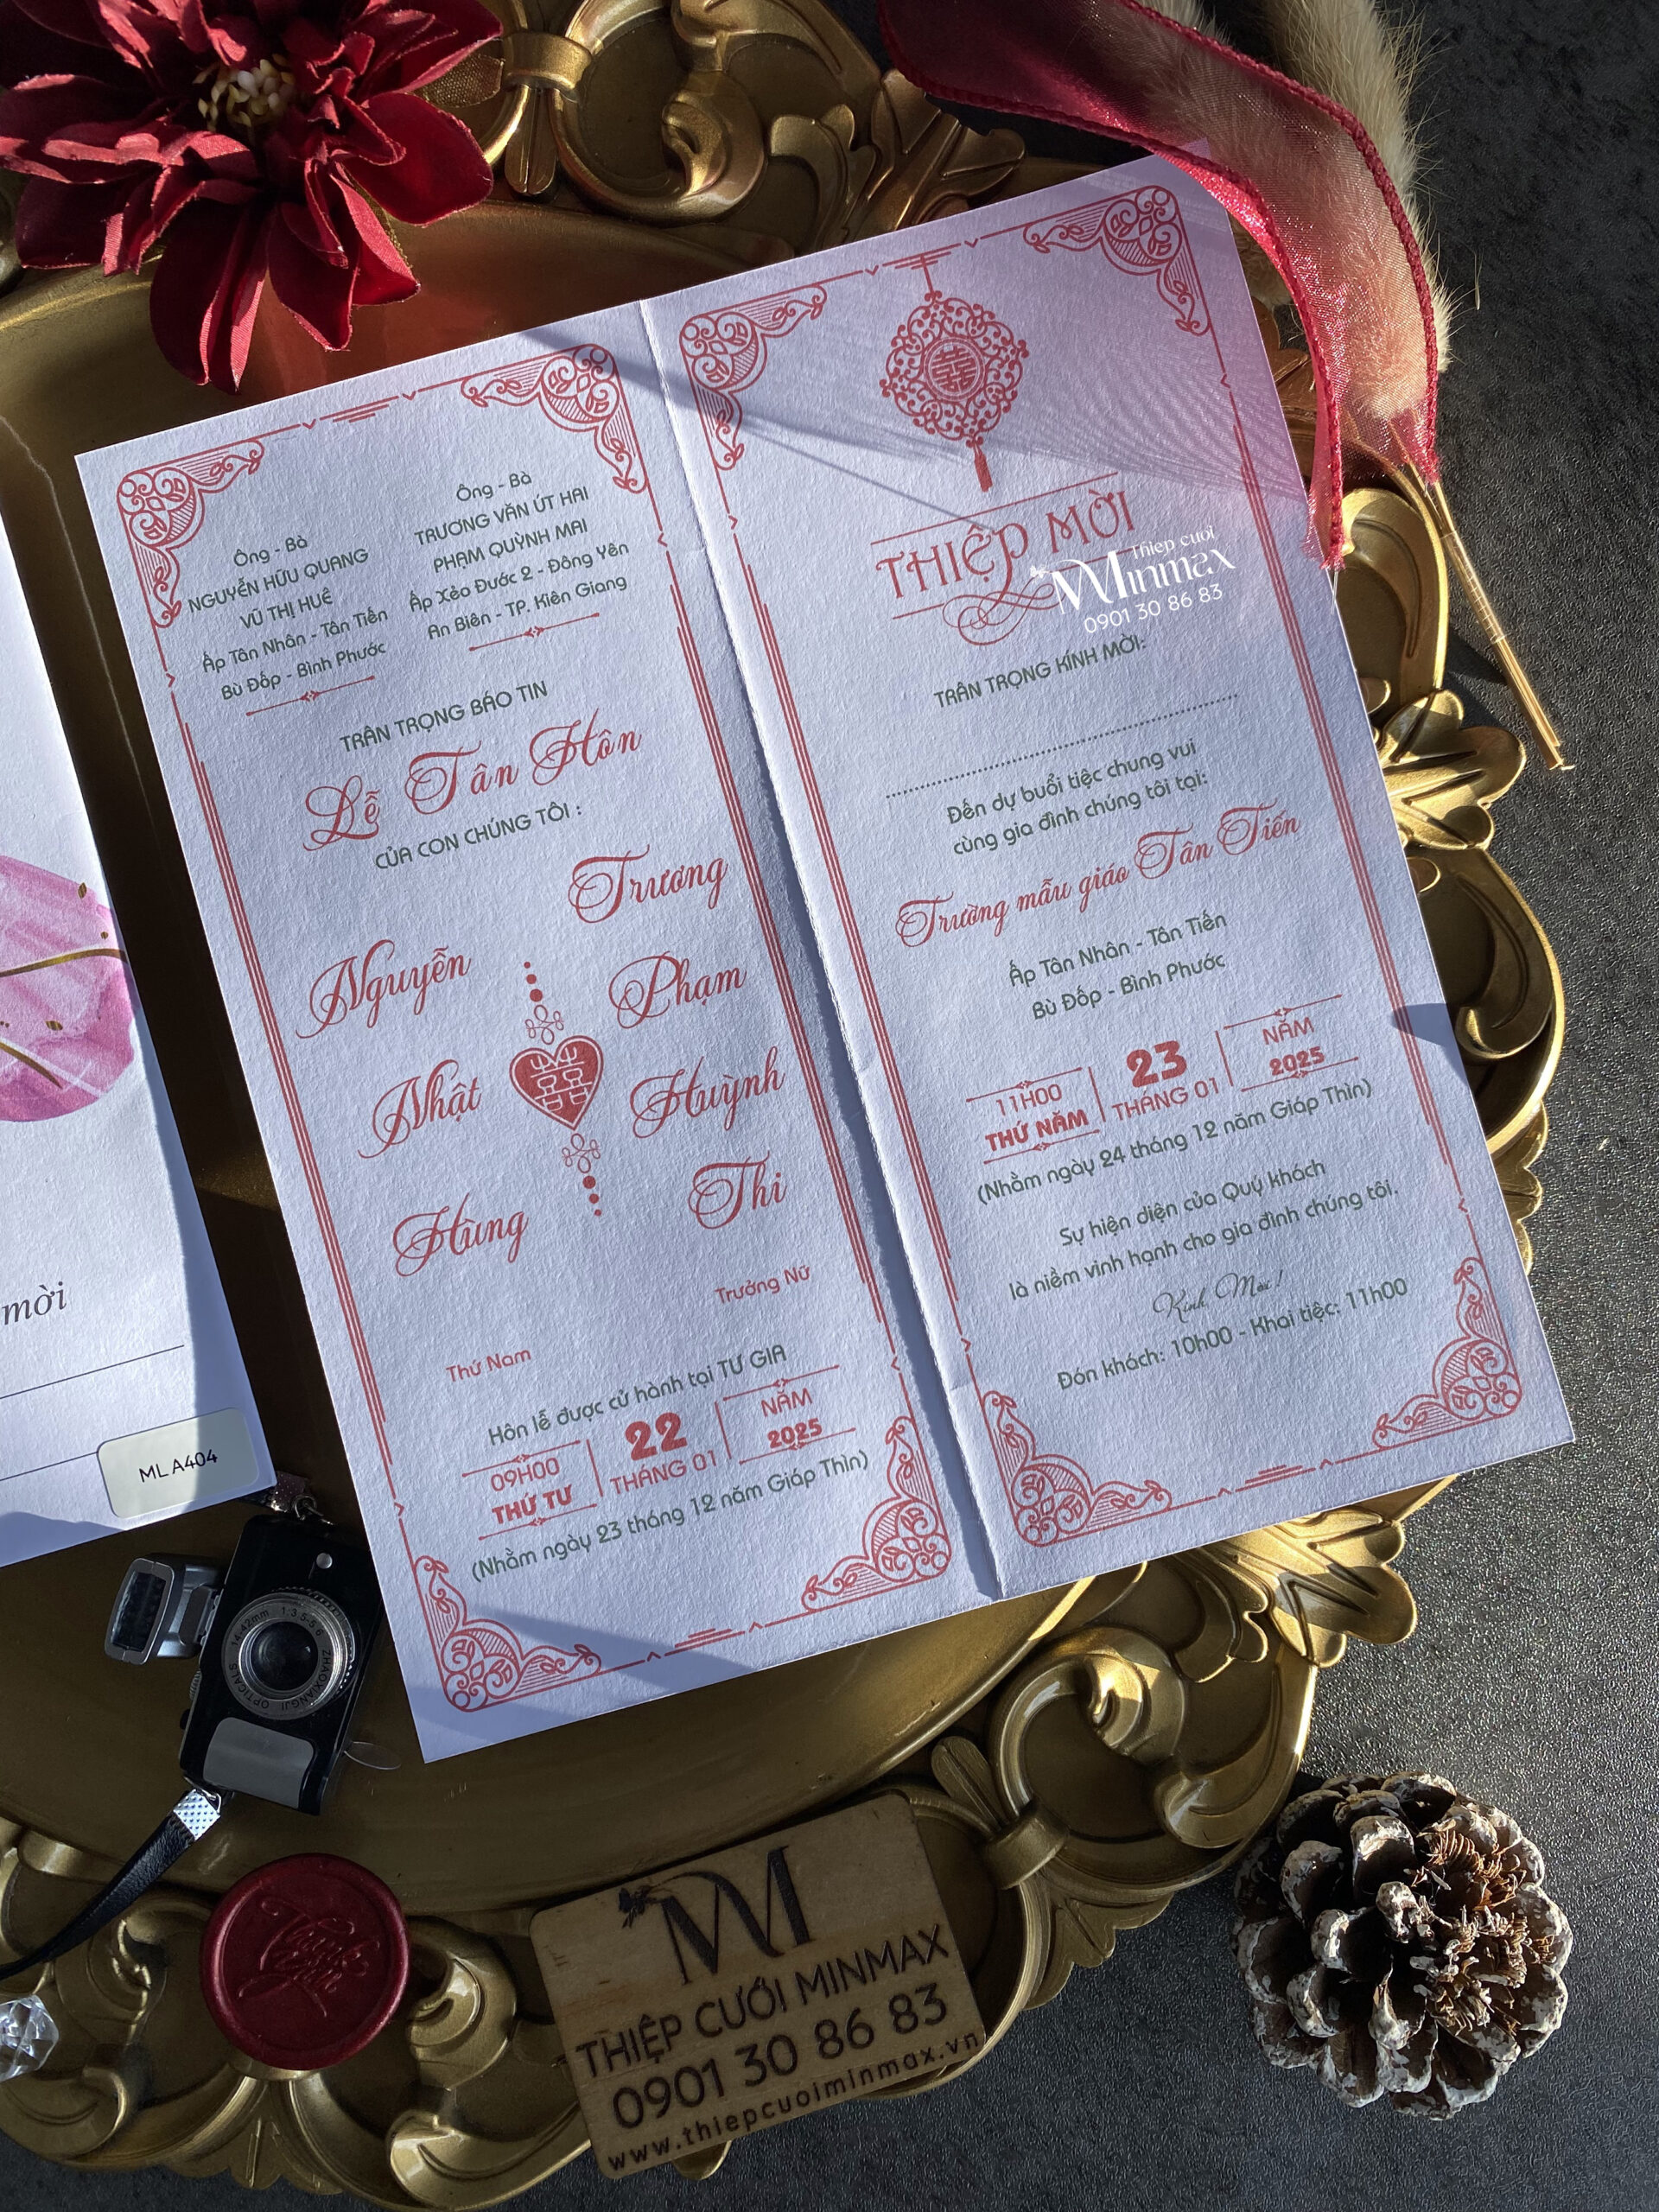 Ông - Bà
NGUYỄN HỮU QUANG
VŨ THỊ HUÊ
Ấp Tân Nhân - Tân Tiến
Bù Đốp - Bình Phước
Ông - Bà
TRƯƠNG VĂN ÚT HAI
PHẠM QUỲNH MAI
Ấp Xẻo Đước 2 - Đông Yên
An Biên - TP. Kiên Giang
TRÂN TRỌNG BÁO TIN
Lễ Tân Hôn
CỦA CON CHÚNG TÔI :
Nguyễn
Nhật
Hùng
Thứ Nam
Trương
Phạm
Huỳnh
Thi
Trưởng Nữ
Hôn lễ được cử hành tại TƯ GIA
09H00
THỨ TƯ
22
THÁNG 01
NĂM
2025
(Nhằm ngày 23 tháng 12 năm Giáp Thìn)
囍
THIỆP MỜI
Thiep cưới
Minmax
0901 30 86 83
TRÂN TRỌNG KÍNH MỜI:
Đến dự buổi tiệc chung vui
cùng gia đình chúng tôi tại:
Trường mẫu giáo Tân Tiến
Ấp Tân Nhân - Tân Tiến
Bù Đốp - Bình Phước
11H00
THỨ NĂM
23
THÁNG 01
NĂM
2025
(Nhằm ngày 24 tháng 12 năm Giáp Thìn)
Sự hiện diện của Quý khách
là niềm vinh hạnh cho gia đình chúng tôi.
Kính Mời!
Đón khách: 10h00 - Khai tiệc: 11h00
mời
MLA404
14-42mm 1:3.5-5.6 ZHAOXIANGJI OPTICALS
Thank You
THIỆP CƯỚI MINMAX
0901 30 86 83
www.thiepcuoiminmax.vn